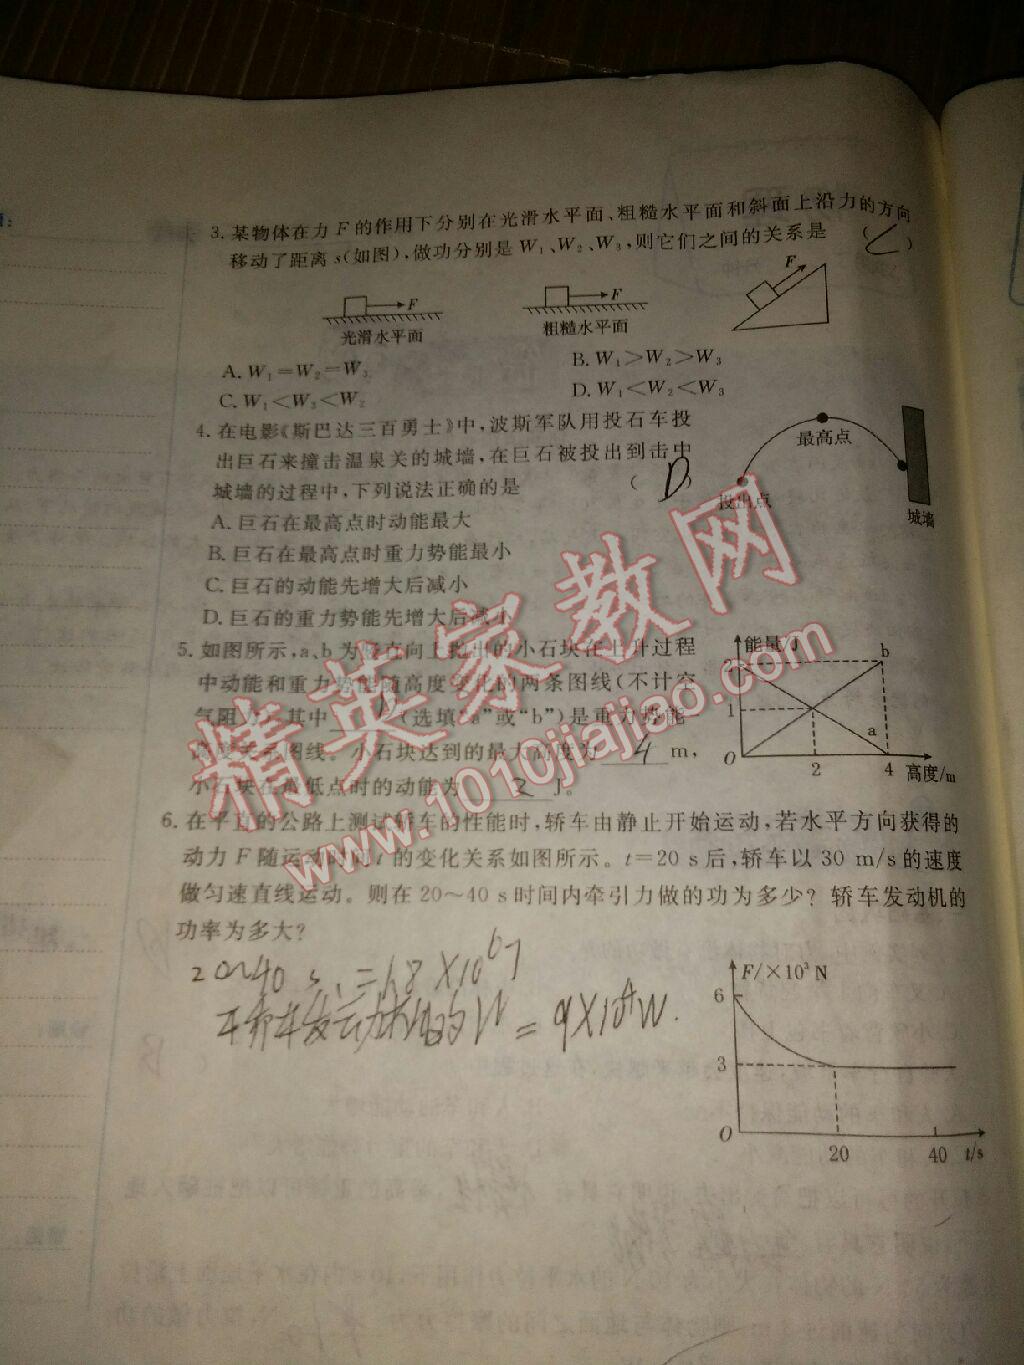 3. 某物体在力 F 的作用下分别在光滑水平面、粗糙水平面和斜面上沿力的方向
移动了距离 s(如图),做功分别是 W₁、W₂、W₃,则它们之间的关系是 ( C )
F
光滑水平面
F
粗糙水平面
F
A. W₁=W₂=W₃
B. W₁>W₂>W₃
C. W₁<W₃<W₂
D. W₁<W₂<W₃
4. 在电影《斯巴达三百勇士》中,波斯军队用投石车投
出巨石来撞击温泉关的城墙,在巨石被投出到击中
城墙的过程中,下列说法正确的是 ( D )
A. 巨石在最高点时动能最大
B. 巨石在最高点时重力势能最小
C. 巨石的动能先增大后减小
D. 巨石的重力势能先增大后减小
最高点
投出点
城墙
5. 如图所示,a、b 为竖直向上抛出的小石块在上升过程
中动能和重力势能随高度变化的两条图线(不计空
气阻力),其中 (选填“a”或“b”)是重力势能—
高度关系图线。小石块达到的最大高度为 4 m,
小石块在最低点时的动能为 2 J。
能量/J
2
b
1
a
O
2
4
高度/m
6. 在平直的公路上测试轿车的性能时,轿车由静止开始运动,若水平方向获得的
动力 F 随运动时间 t 的变化关系如图所示。t=20 s 后,轿车以 30 m/s 的速度
做匀速直线运动。则在 20~40 s 时间内牵引力做的功为多少? 轿车发动机的
功率为多大?
20~40 s =1.8×10⁶J
发动机的W=9×10⁴W.
F/×10³ N
6
3
O
20
40
t/s
精英家教网
www.1010jiajiao.com